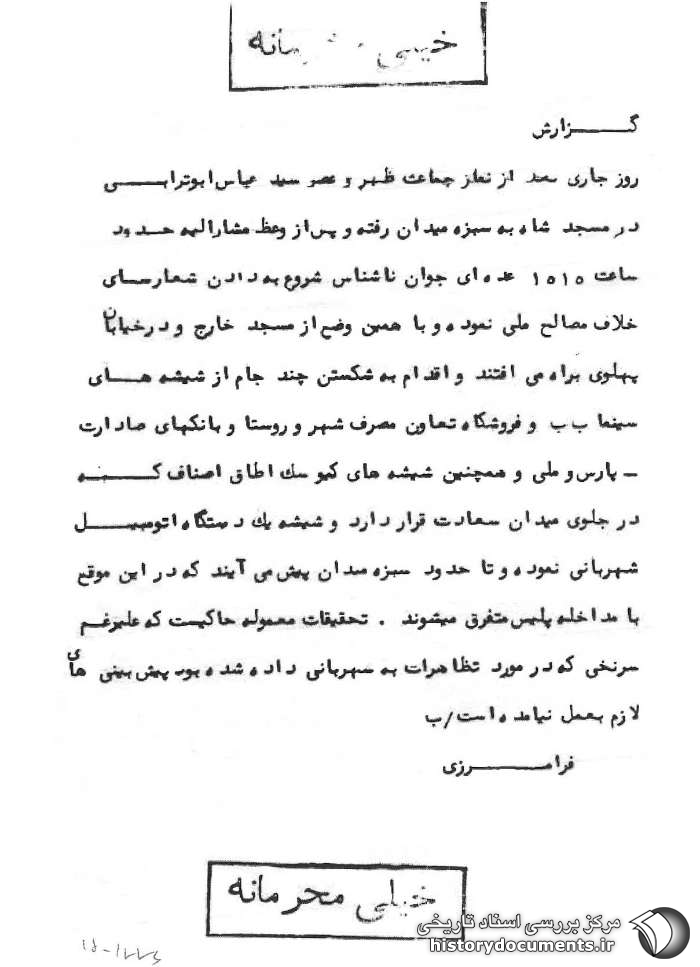 خیلی محرمانه
گـــزارش
روز جاری بعد از نماز جماعت ظهر و عصر سید عباس ابوترابـــی
در مسجد شاه به سبزه میدان رفته و پس از وعظ مشارالیه حـــدود
ساعت ۱۵۱۵ عده ای جوان ناشناس شروع به دادن شعارهـــای
خلاف مصالح ملی نموده و با همین وضع از مسجد خارج و در خیابان
پهلوی براه می افتند و اقدام به شکستن چند جام از شیشه هـــای
سینما ب ب و فروشگاه تعاون مصرف شهر و روستا و بانکهای صادرت
ـ پارس و ملی و همچنین شیشه های کیوسک اطاق اصناف کـــه
در جلوی میدان سعادت قرار دارد و شیشه یک دستگاه اتومبیـــل
شهربانی نموده و تا حدود سبزه میدان پیش می آیند که در این موقع
با مداخله پلیس متفرق میشوند . تحقیقات معموله حاکیست که علیرغم
سرنخی که در مورد تظاهرات به شهربانی داده شده بود پیش بینی های
لازم بعمل نیامده است/ب
فرامـــرزی
خیلی محرمانه
مرکز بررسی اسناد تاریخی
historydocuments.ir